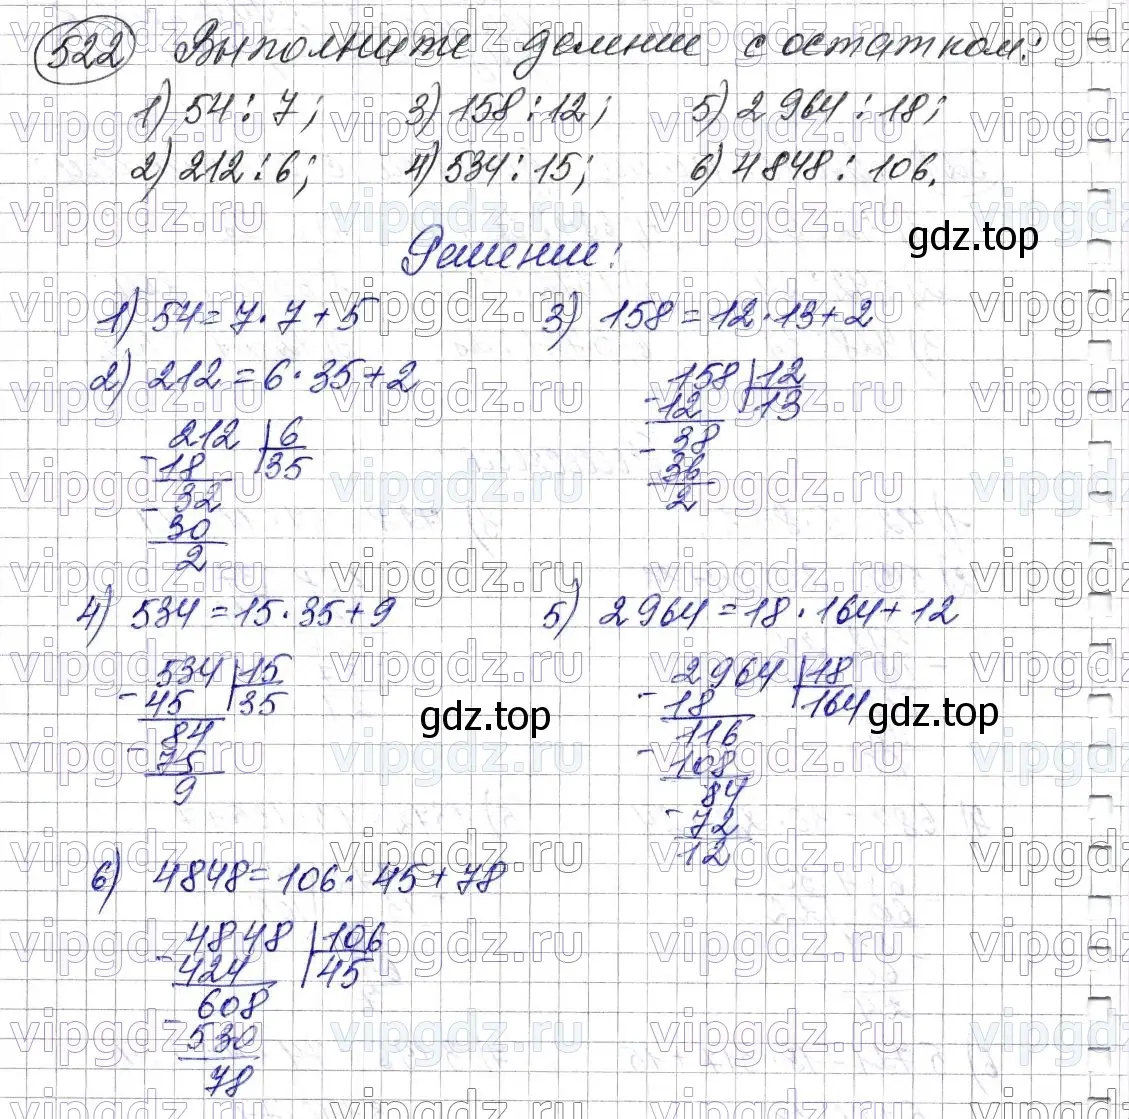 522 Выполните деление с остатком:
1) 54 : 7; 3) 158 : 12; 5) 2 964 : 18;
2) 212 : 6; 4) 534 : 15; 6) 4 848 : 106.
gdz.top
Решение:
1) 54 = 7 · 7 + 5
2) 212 = 6 · 35 + 2
212 | 6
- 18 | 35
32
- 30
2
3) 158 = 12 · 13 + 2
158 | 12
- 12 | 13
38
- 36
2
4) 534 = 15 · 35 + 9
534 | 15
- 45 | 35
84
- 75
9
gdz.top
5) 2 964 = 18 · 164 + 12
2 964 | 18
- 18 | 164
116
- 108
84
- 72
12
gdz.top
6) 4848 = 106 · 45 + 78
4848 | 106
- 424 | 45
608
- 530
78
vipgdz.ru